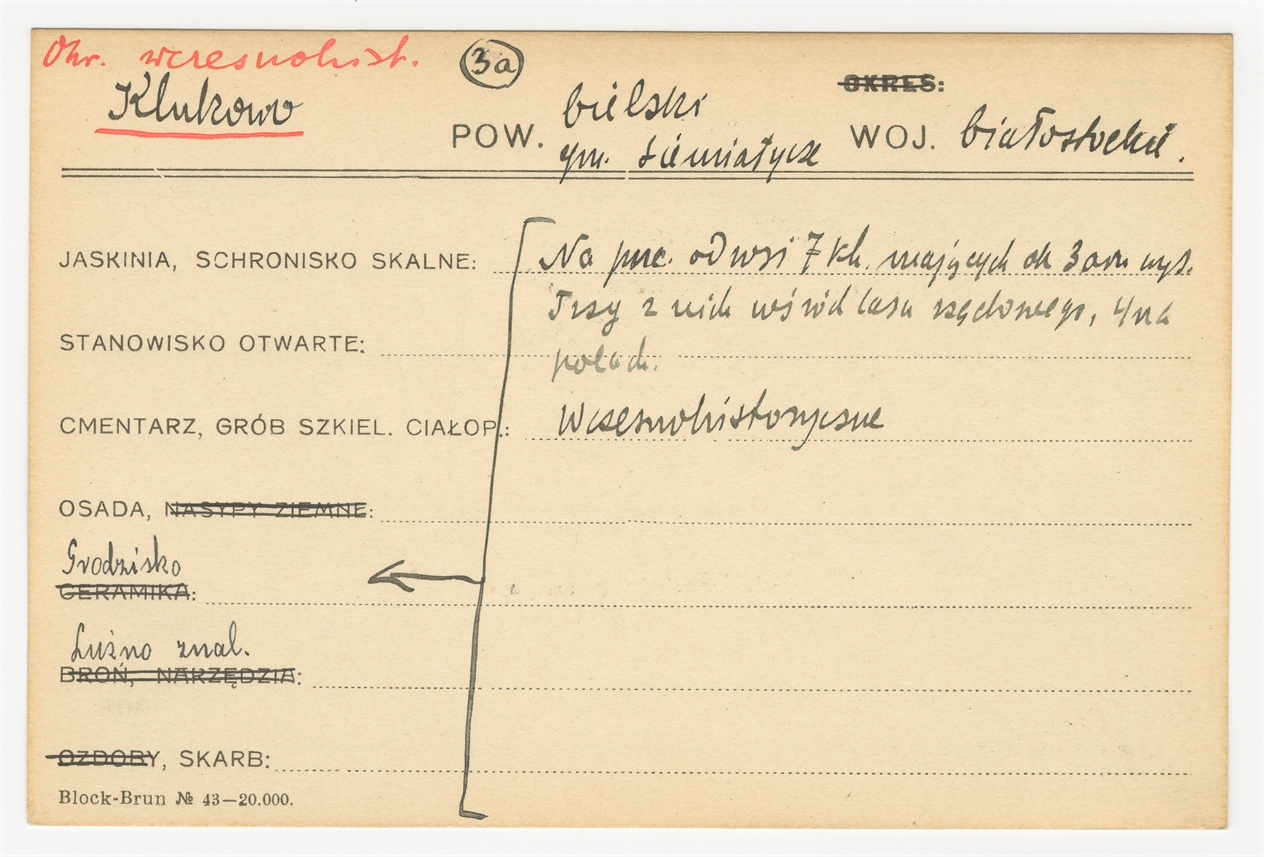 Okr. wczesnohist.
3a
Klukowo
OKRES:
POW. bielski
gm. Siemiatycze
WOJ. białostockie.
JASKINIA, SCHRONISKO SKALNE: Na płc. od wsi 7 kh. mających ok 3 wys.
Trzy z nich wśród lasu rządowego, 4 na
STANOWISKO OTWARTE:
polach.
CMENTARZ, GRÓB SZKIEL. CIAŁOP.: Wczesnohistoryczne
OSADA, NASYPY ZIEMNE:
Grodzisko
CERAMIKA:
Luźno znal.
BROŃ, NARZĘDZIA:
OZDOBY, SKARB:
Block-Brun № 43—20.000.